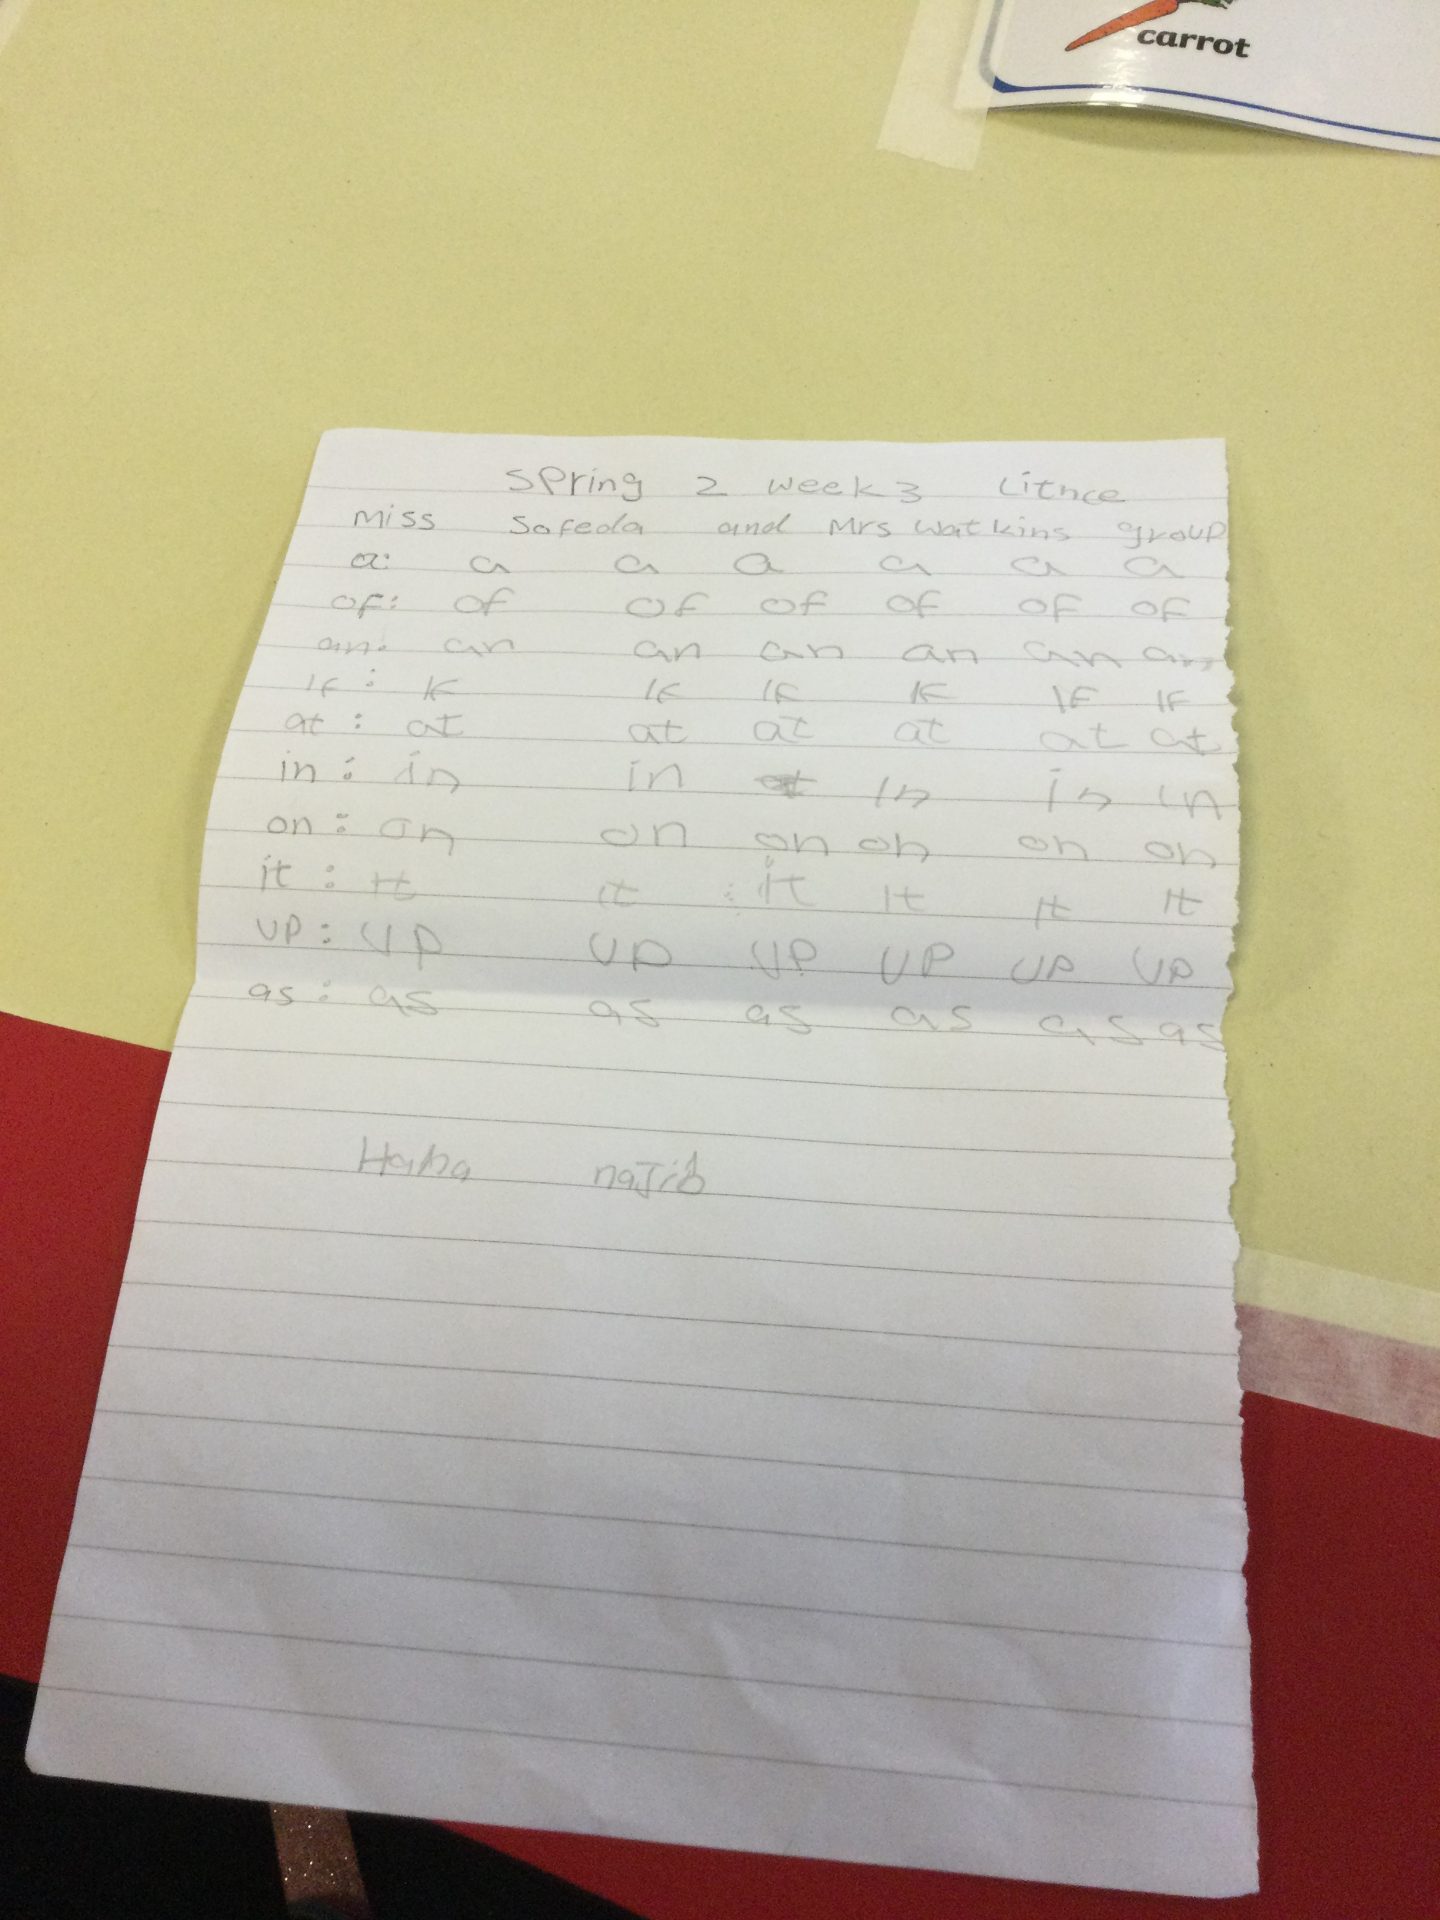 carrot
Spring 2 week 3 Litnce
Miss Sofeda and Mrs Watkins group
a: a a a a a a
of: of of of of of of
an: an an an an an an
if: if if if if if if
at: at at at at at at
in: in in in in in
on: on on on on on on
it: it it it it it it
UP: UP UP UP UP UP UP
as: as as as as as as
najib